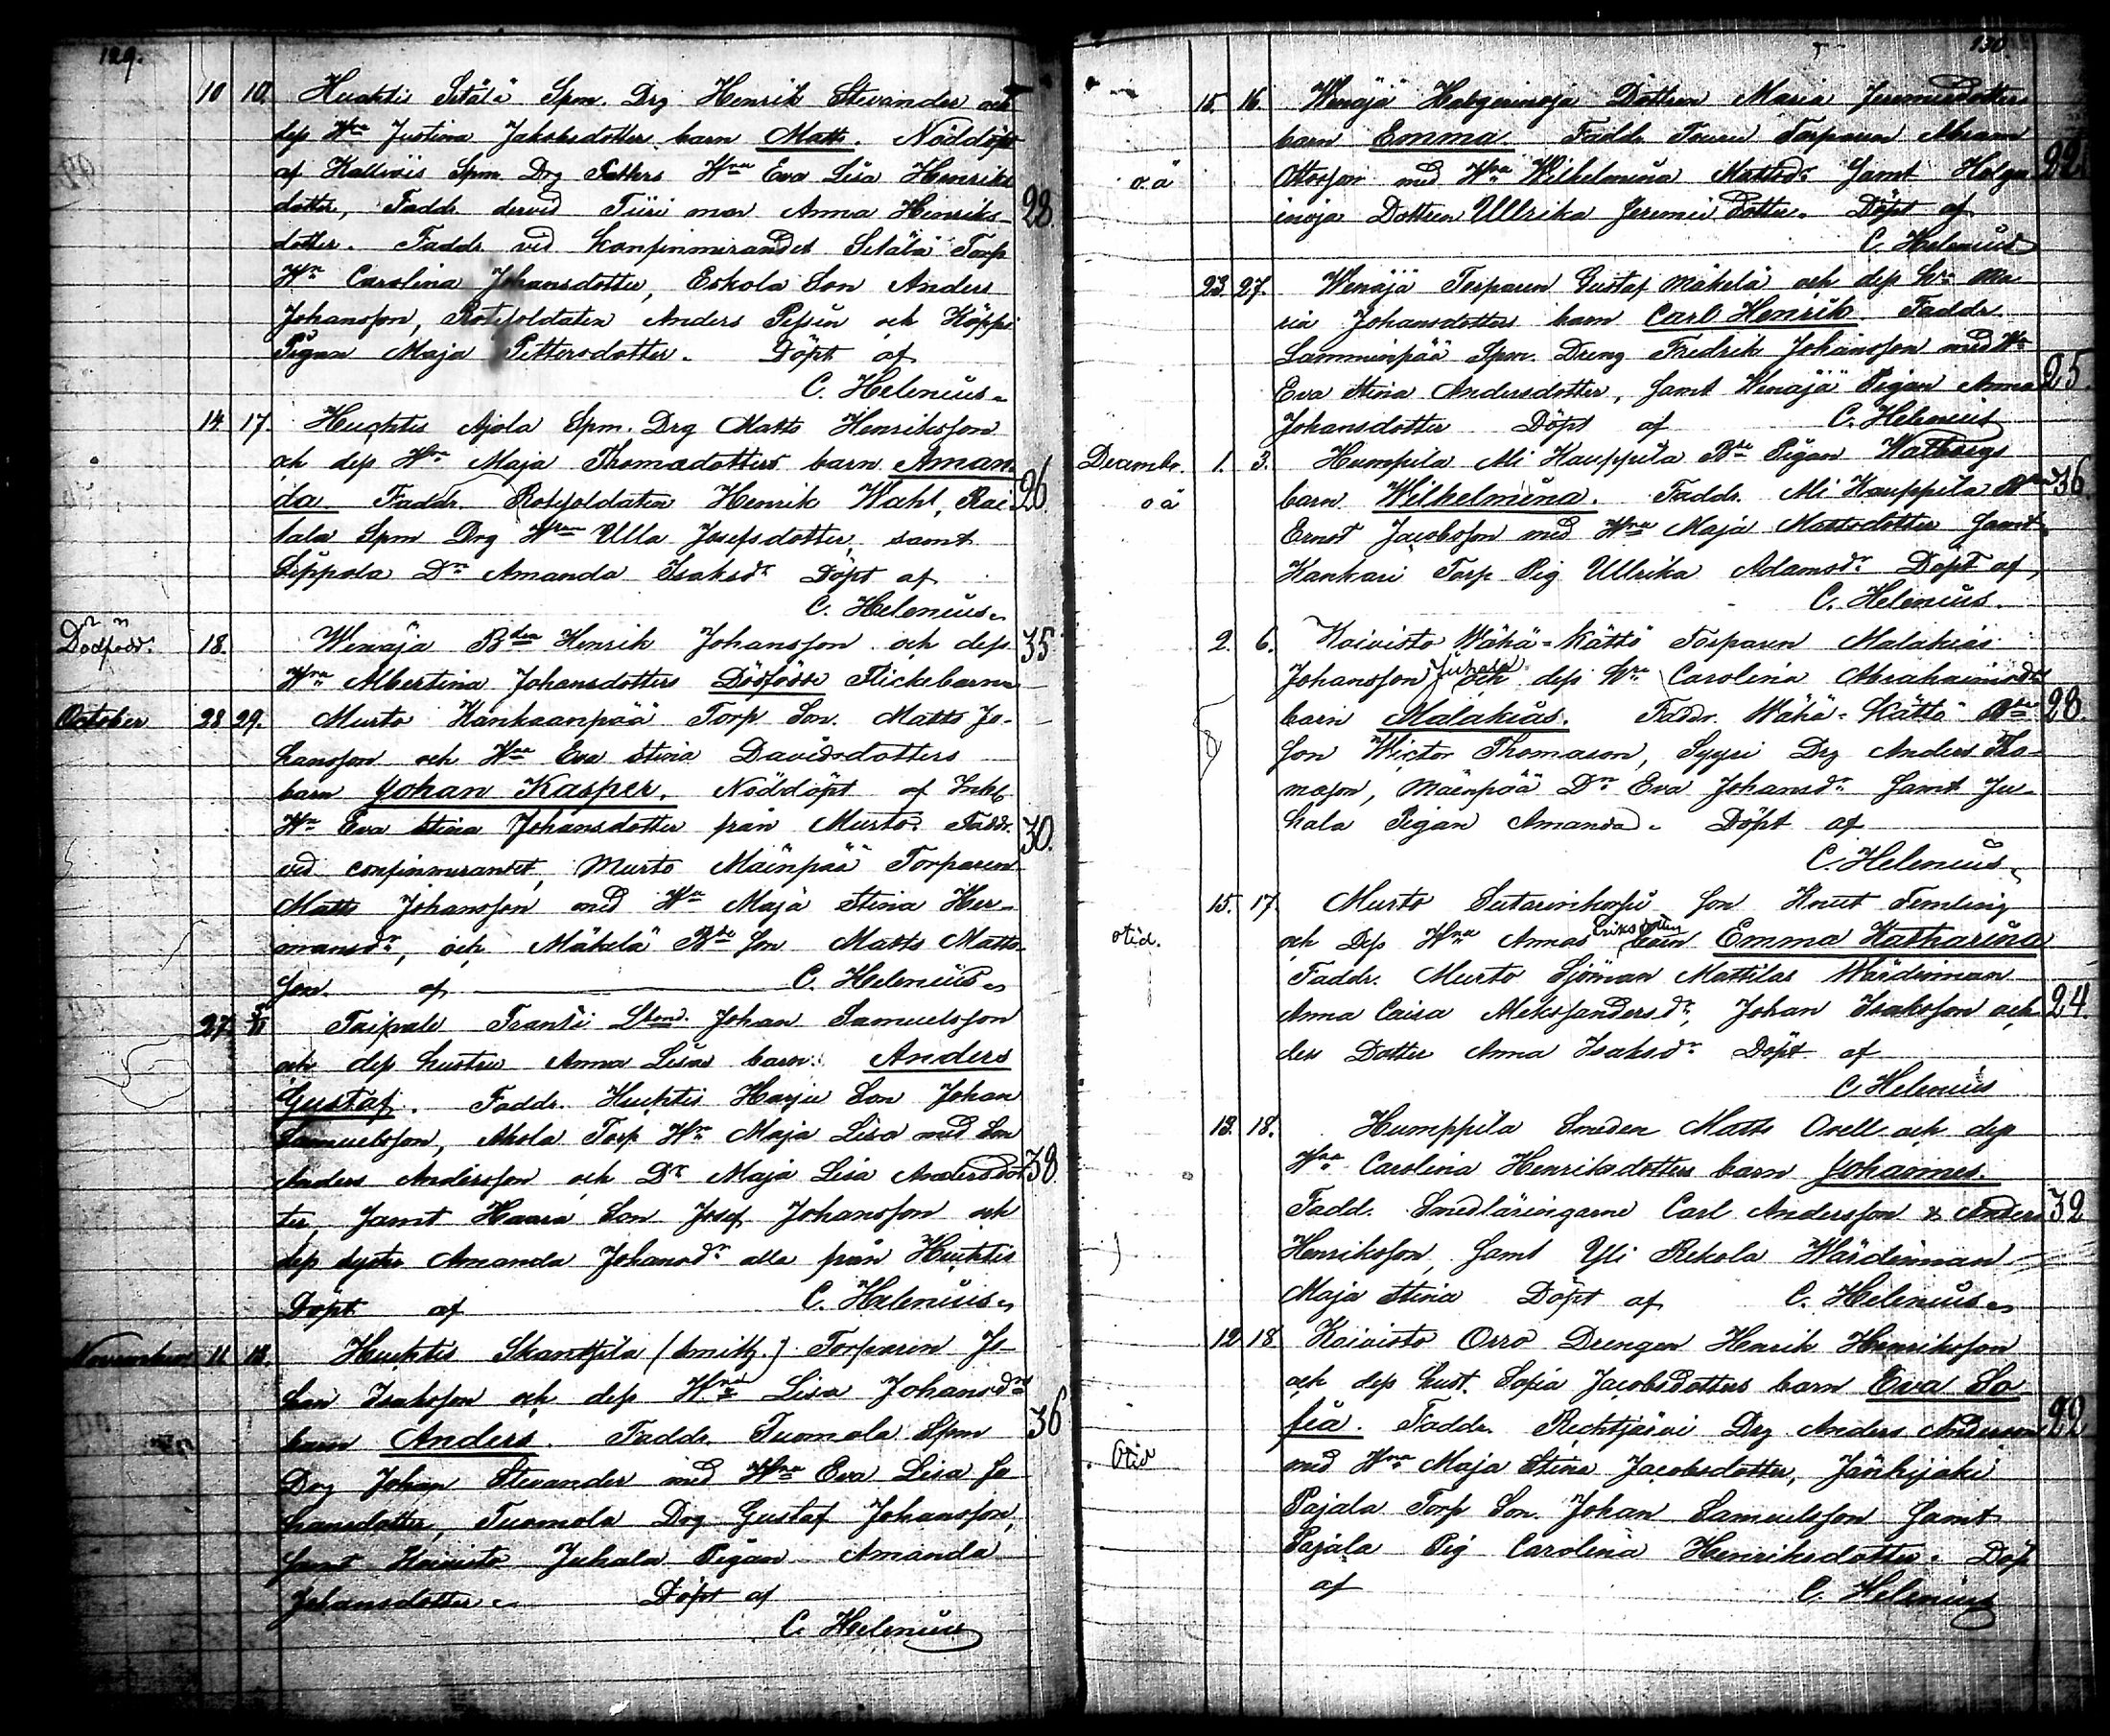 129.
10 10. Huhtis Sitälä Spm. Drg Henrik Stevander och
dess Hru Justina Jakobsdotters barn Matts. Nöddöpt
af Kallivis Spm Drg Hru Eva Lisa Henriks
dotter, Faddr. dervid Tiiri mor Anna Henriks- 28.
dotter. Faddr. ved Konfirmerandet Setälä Torp
Hru Carolina Johansdotter, Eskola Son Anders
Johansson, Rotesoldaten Anders och Köppi
Pigan Maja Pettersdotter. Döpt af
C. Helenius
14. 17. Huhtis Ajola Spm. Drg Matts Henriksson
och dess Hru Maja Thomasdotters barn Aman-
da. Faddr. Rotesoldaten Henrik Wahl, Rai- 26
tala Spm Drg Hru Ulla Josefsdotter, samt
Sippola Dr Amanda Isaksdr Döpt af
C. Helenius
Dödfödd. 18. Wenäjä Bden Henrik Johansson och dess 35
Hru Albertina Johansdotters Dödfödde Flickebarn
October 28 29. Murto Kankaanpää Torp Son. Matts Jo-
hansson och Hru Eva Stina Davidsdotters
barn Johan Kasper. Nöddöpt af Inhs
Hru Eva Stina Johansdotter från Murto. Faddr. 30.
ved confirmerandet, Murto Mäenpää Torparen
Matts Johansson med Hru Maja Stina Her-
mansdr, och Mäkelä Bde Son Matts Matts-
son. af C. Helenius
27. Taipale Frantsi Johan Samuelsson
och dess hustru Anna Lisas barn: Anders
Gustaf. Faddr. Huhtis Harju Son Johan
Samuelsson, Akola Torp Hru Maja Lisa med Son
Anders Andersson och Dr Maja Lisa Andersdot- 38
ter, samt Haara Son Josef Johansson och
dess syster Amanda Johansdr alla från Huhtis
Döpt af C. Helenius
November 11 18. Huhtis Skanttila (Smitz.) Torparen Jo-
han Isaksson och dess Hru Lisa Johansdrs
barn Anders. Faddr. Tuomola Spm 36
Drg Johan Stevander med Hru Eva Lisa Jo
hansdotter, Tuomola Drg Gustaf Johansson,
samt Koivisto Juhala Pigan Amanda
Johansdotter. Döpt af
C. Helenius
130
15. 16. Wenäjä Halgeinoja Dottren Maria Jeremiædotters
barn Emma. Faddr. Touru Torparen Abraam
o.ä Ottosson med Hru Wilhelmina Mattsdr Samt Halge 22.
inoja Dottren Ullrika Jeremiæ Dotter. Döpt af
C. Helenius
23. 27. Wenäjä Torparen Gustaf Mäkelä och dess Hru Ma-
ria Johansdotters barn Carl Henrik. Faddr.
Lamminpää Spm. Dreng Fredrik Johansson med Hru
Eva Stina Andersdotter, samt Wenäjä Pigan Anna 25.
Johansdotter Döpt af C. Helenius
December 1. 3. Humpila Ali Hauppila Bde Pigan Walborgs
oä barn Wilhelmina. Faddr. Ali Kauppila Bden 36.
Ernst Jacobsson med Hru Maja Mattsdotter samt
Kankari Torp Pig Ullrika Adamsdr Döpt af
C. Helenius.
2. 6. Koivisto Wähä-Kättö Torparen Malakias
Johansson Juhala och dess Hru Carolina Abrahamsdrs
barn Malakias. Faddr. Wähä-Kättö Bde 28.
Son Wictor Thomasson, Syyri Drg Anders Tho-
masson, Mäenpää Dr Eva Johansdr samt Ju-
hala Pigan Amanda. Döpt af
C. Helenius
15. 17. Murto Son Knut Temling
otid. och Dess Hru Annas Eriksdotters barn Emma Katharina
Faddr. Murto Sjöman Mattilas Wärdinnan
Anna Caisa Aleksandersdr, Johan Isaksson och 24.
des Dotter Anna Isaksdr Döpt af
C Helenius
13. 18. Humppila Smeden Matts Orell och dess
Hru Carolina Henriksdotters barn Johannes.
Fadd. Smedläringarne Carl Andersson & Anders 32
Henriksson, samt Yli Rekola Wärdinnan
Maja Stina Döpt af C. Helenius
12 18 Koivisto Orro Drengen Henrik Henriksson
och dess Hust. Sofia Jacobsdotters barn Eva So
fia. Faddr. Rechtjärvi Drg Anders Andersson 22
Otid med Hru Maja Stina Jacobsdotter, Jänhijoki
Pajala Torp Son. Johan Samuelsson samt
Pajala Pig Carolina Henriksdotter. Döpt
af C. Helenius